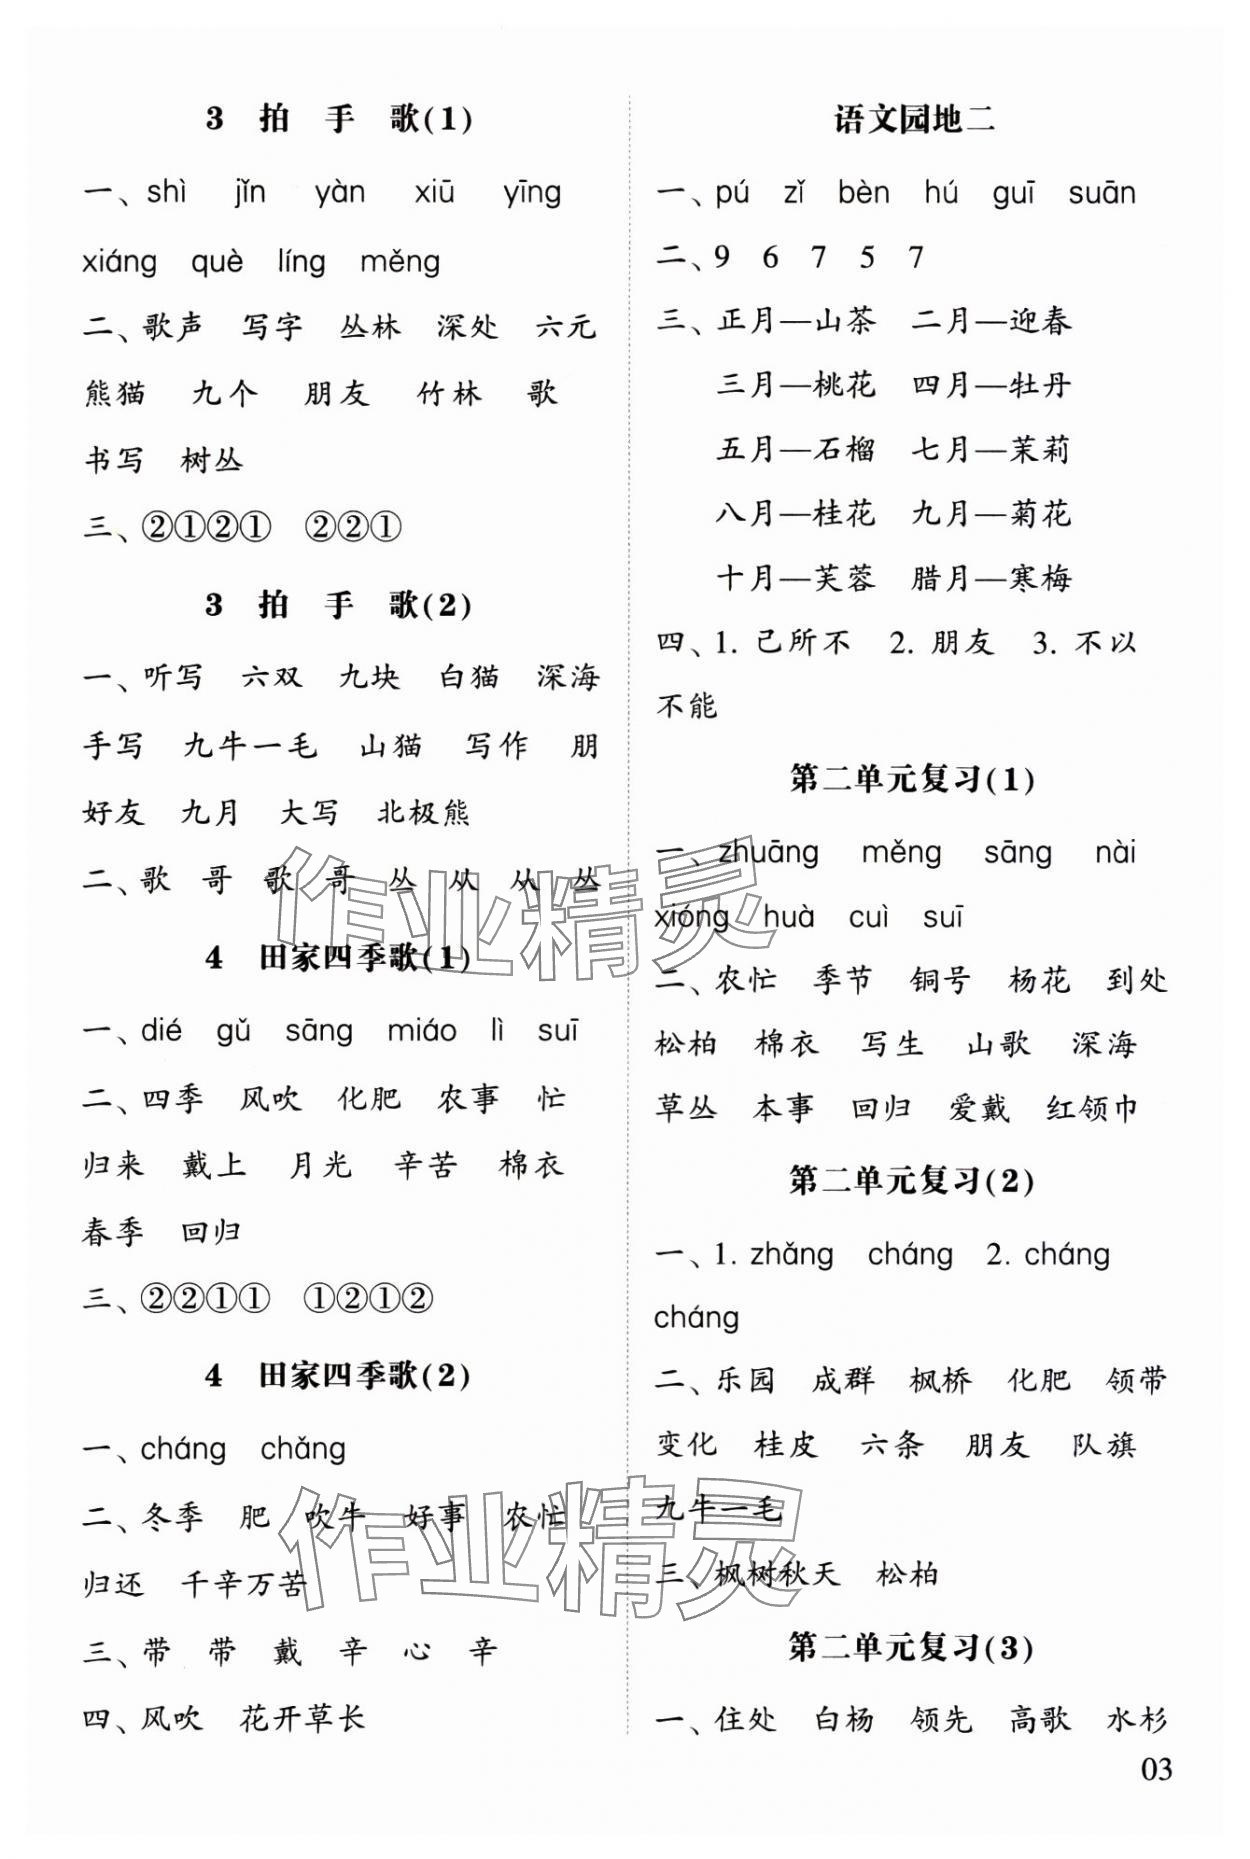 3 拍 手 歌(1)
一、shì jǐn yàn xiū yīng
xiáng què líng měng
二、歌声 写字 丛林 深处 六元
熊猫 九个 朋友 竹林 歌
书写 树丛
三、②①②① ②②①
3 拍 手 歌(2)
一、听写 六双 九块 白猫 深海
手写 九牛一毛 山猫 写作 朋
好友 九月 大写 北极熊
二、歌 哥 歌 哥 丛 从 从 丛
4 田家四季歌(1)
一、dié gǔ sāng miáo lì suī
二、四季 风吹 化肥 农事 忙
归来 戴上 月光 辛苦 棉衣
春季 回归
三、②②①① ①②①②
4 田家四季歌(2)
一、cháng chǎng
二、冬季 肥 吹牛 好事 农忙
归还 千辛万苦
三、带 带 戴 辛 心 辛
四、风吹 花开草长
语文园地二
一、pú zǐ bèn hú guī suān
二、9 6 7 5 7
三、正月—山茶 二月—迎春
三月—桃花 四月—牡丹
五月—石榴 七月—茉莉
八月—桂花 九月—菊花
十月—芙蓉 腊月—寒梅
四、1. 己所不 2. 朋友 3. 不以
不能
第二单元复习(1)
一、zhuāng měng sāng nài
xióng huà cuì suī
二、农忙 季节 铜号 杨花 到处
松柏 棉衣 写生 山歌 深海
草丛 本事 回归 爱戴 红领巾
第二单元复习(2)
一、1. zhǎng cháng 2. cháng
cháng
二、乐园 成群 枫桥 化肥 领带
变化 桂皮 六条 朋友 队旗
九牛一毛
三、枫树秋天 松柏
第二单元复习(3)
一、住处 白杨 领先 高歌 水杉
03
作业精灵
作业精灵